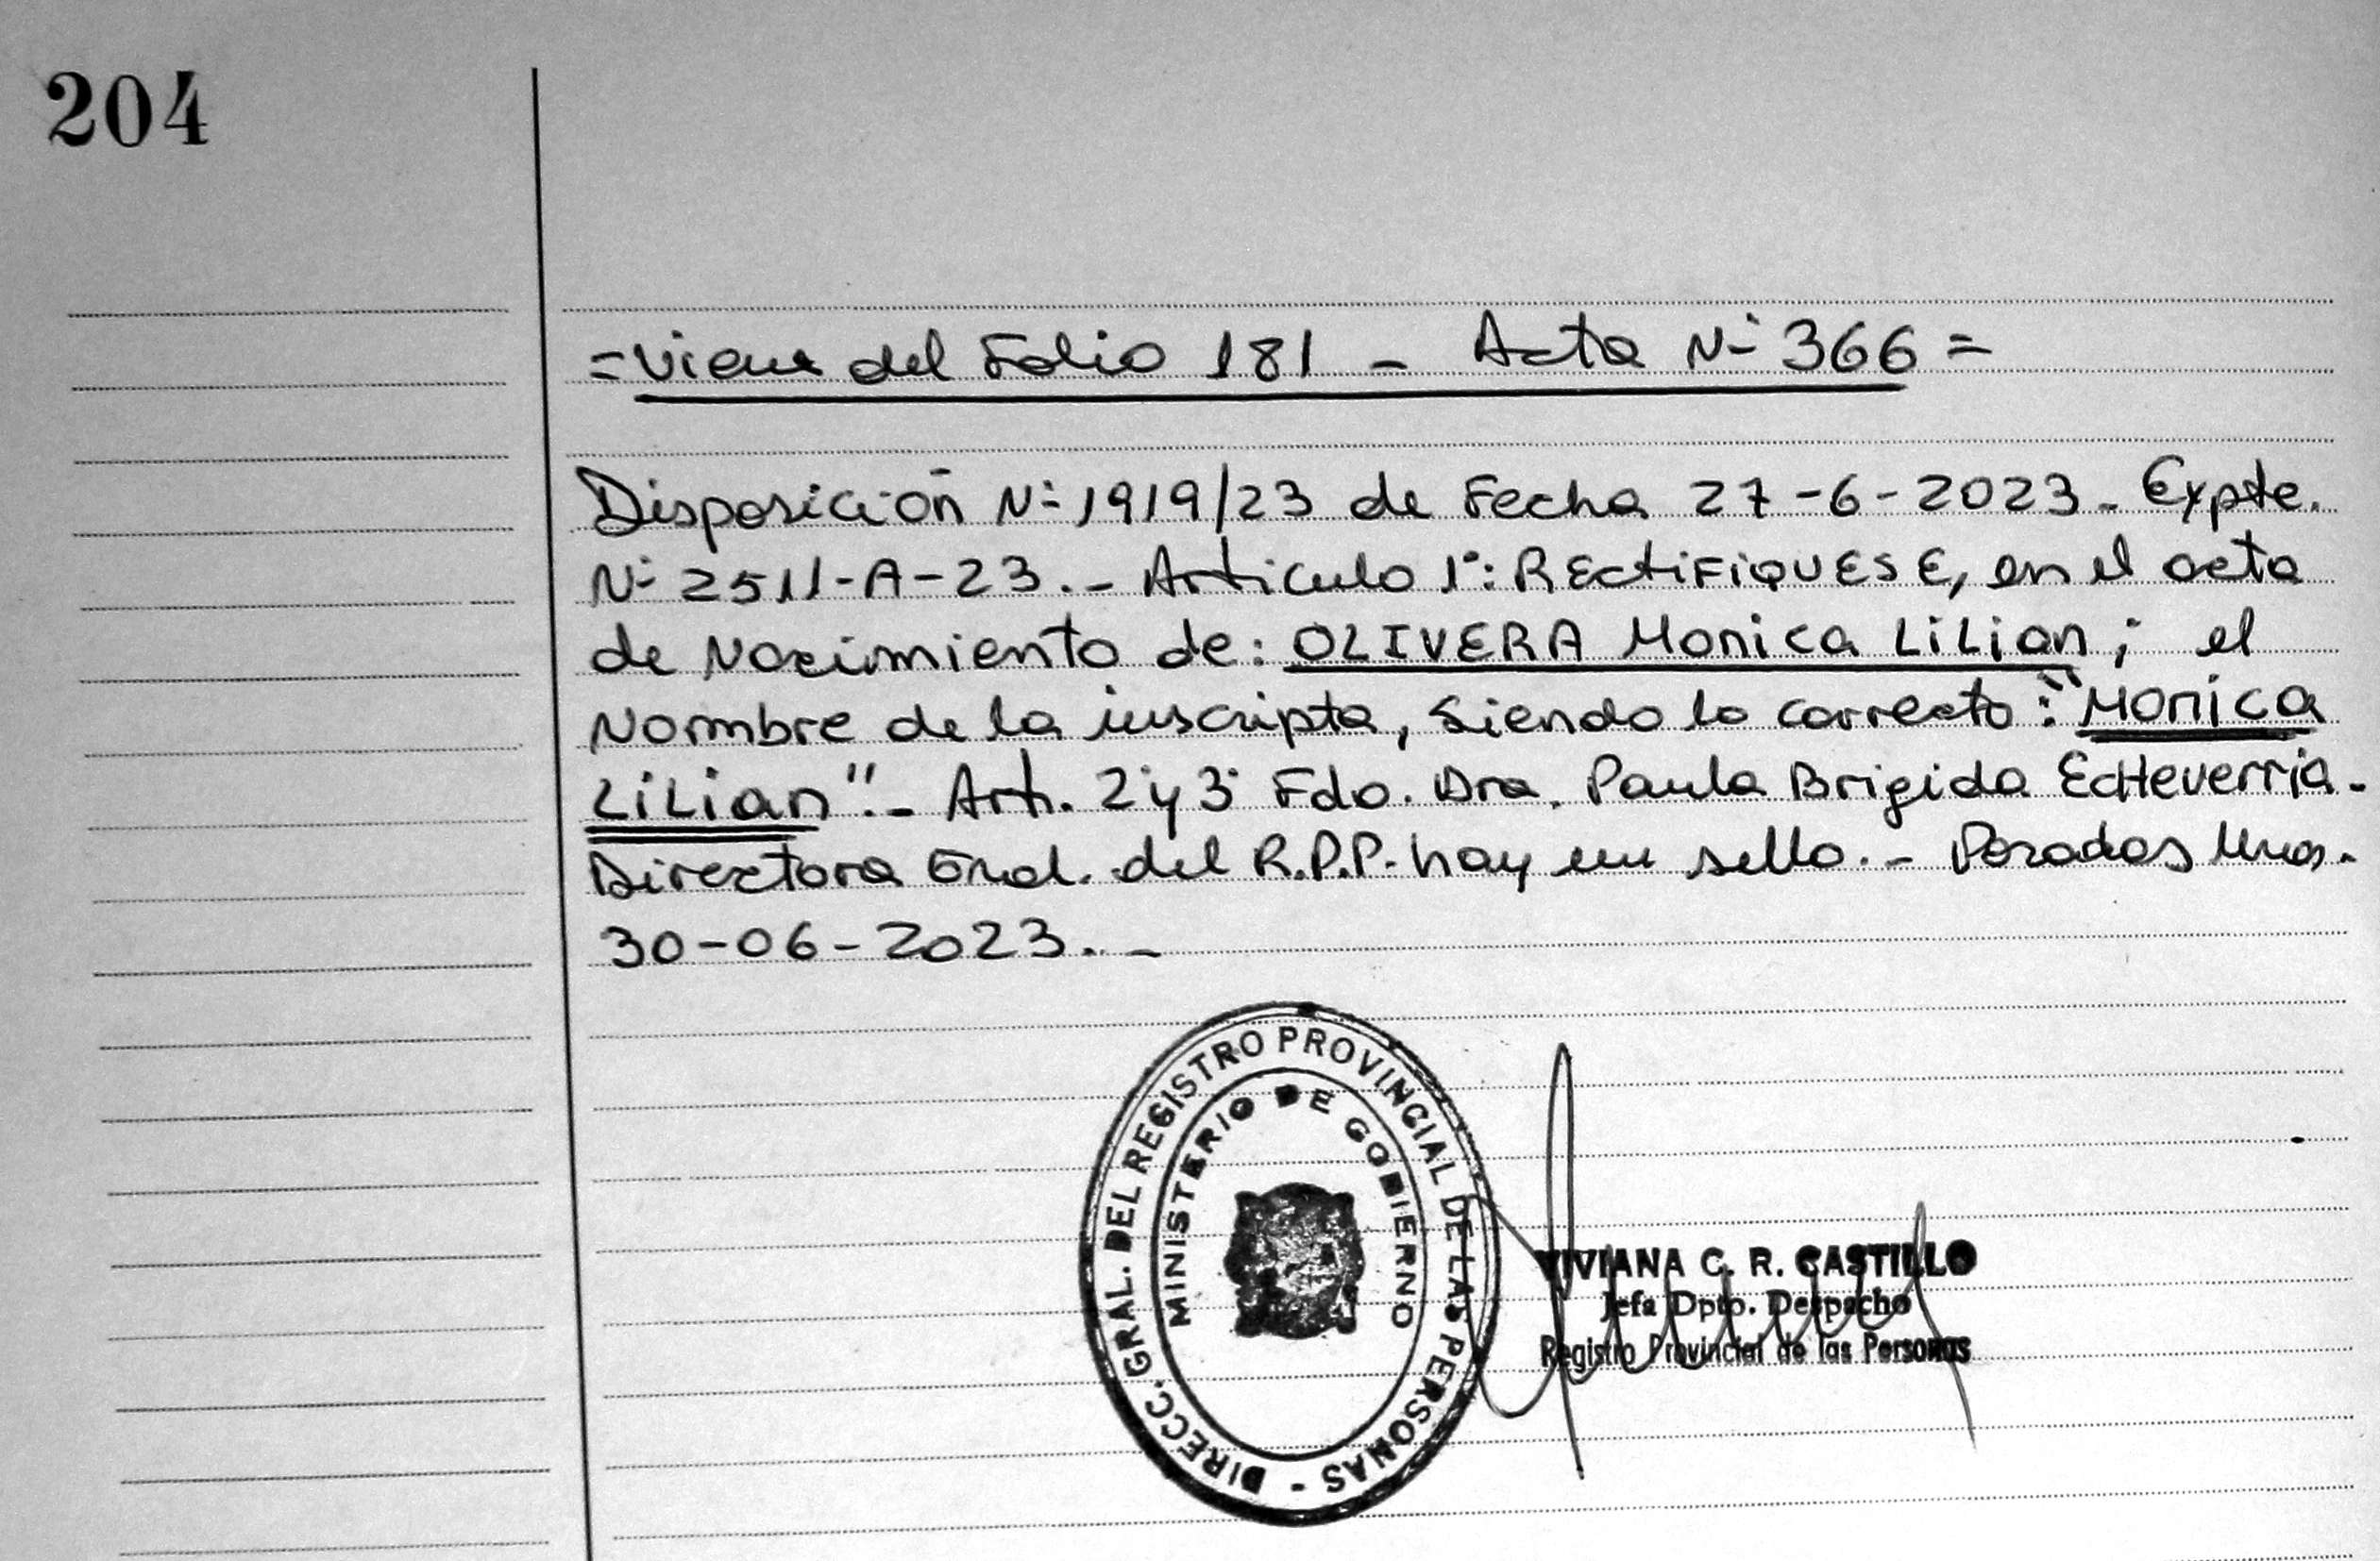 204
=Viene del Folio 181 - Acta Nº 366=
Disposición Nº 1919/23 de Fecha 27-6-2023.- Expte.
Nº 2511-A-23.- Articulo 1º: RECtiFiQUESE, en el acta
de Nacimiento de: OLIVERA Monica LiLian; el
Nombre de la inscripta, siendo lo correcto: "Monica
LiLian".- Art. 2º y 3º Fdo. Dra. Paula Brigida Echeverria.
Directora Gral. del R.P.P. hay un sello.- Posadas Mnes.
30-06-2023.-
DIRECC. GRAL. DEL REGISTRO PROVINCIAL DE LAS PERSONAS -
MINISTERIO DE GOBIERNO
VIVIANA C. R. CASTILLO
Jefa Dpto. Despacho
Registro Provincial de las Personas